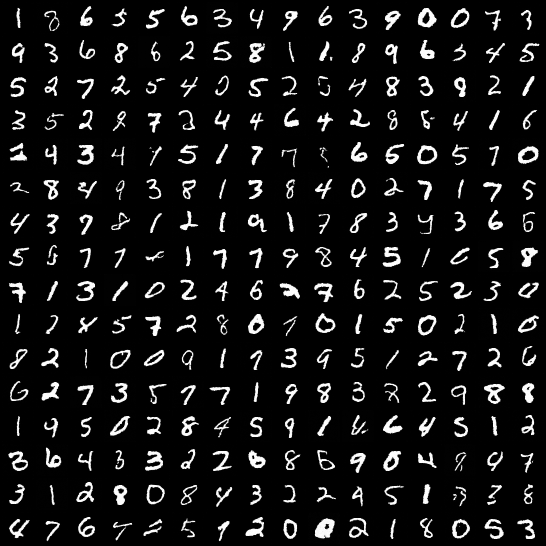 1 8 6 5 5 6 3 4 9 6 3 9 0 0 7 3
9 3 6 8 6 2 5 8 1 1 8 9 6 3 4 5
5 2 7 2 5 4 0 5 2 5 4 8 3 8 2 1
3 5 2 9 7 3 4 4 6 4 2 8 8 4 1 6
1 4 3 4 9 5 1 7 7 6 6 0 5 7 0
2 8 4 9 3 8 1 3 8 4 0 2 7 1 7 5
4 3 7 8 1 2 1 9 1 7 8 3 9 3 6 6
5 8 7 7 1 7 7 9 8 4 5 1 0 5 8
7 1 3 1 0 2 4 6 2 7 6 2 5 2 3 0
1 7 8 5 7 2 8 0 7 0 1 5 0 2 1 0
8 2 1 0 0 9 1 7 3 9 5 1 2 7 2 6
6 2 7 3 5 7 7 1 9 8 3 8 2 9 8 8
1 9 5 0 2 8 4 5 9 1 6 6 4 5 1 2
3 6 4 3 3 2 2 6 8 5 9 0 4 9 9 7
3 1 2 8 0 8 4 3 2 2 4 5 1 3 8
4 7 6 7 5 9 2 0 0 2 1 8 0 5 3